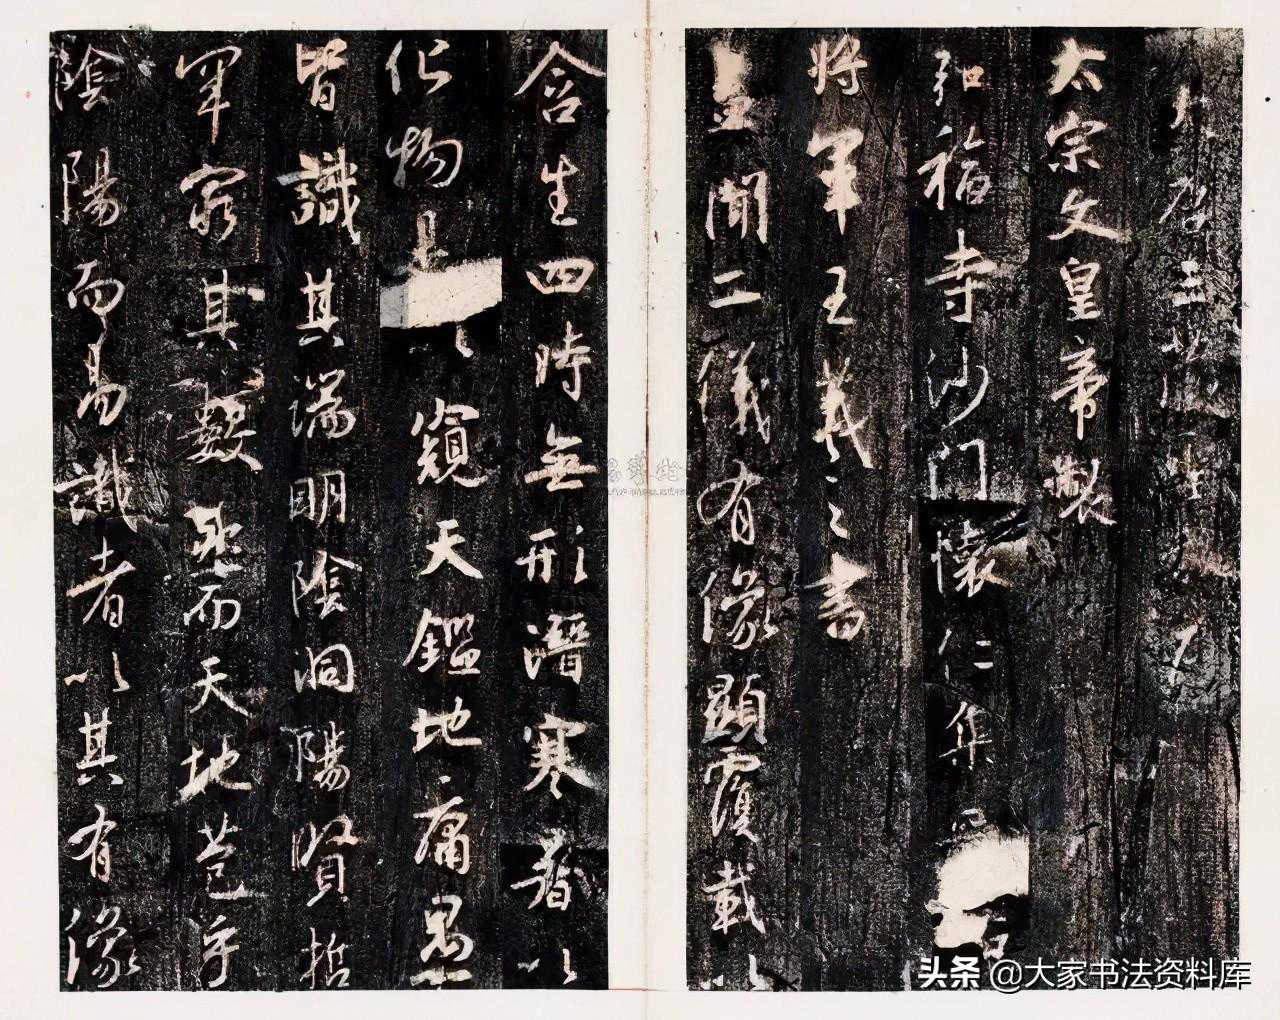 大唐三藏聖教序
太宗文皇帝製
弘福寺沙門懷仁集
將軍王羲之書
蓋聞二儀有像顯覆載以
含生四時無形潛寒暑以
化物是以窺天鑑地庸愚
皆識其端明陰洞陽賢哲
罕窮其數然而天地苞乎
陰陽而易識者以其有像
头条 @大家书法资料库